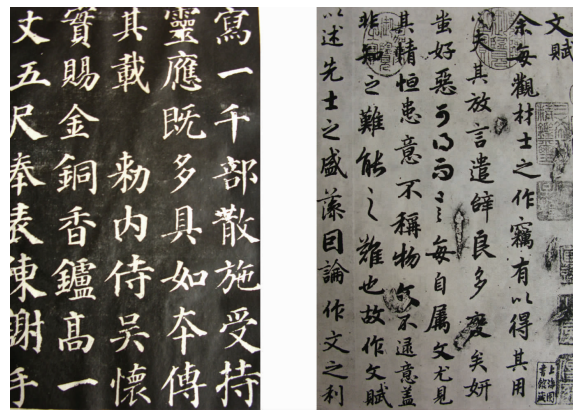 寫一千部散施受持
靈應既多具如夲傳
其載 勅内侍吳懷
實賜金銅香鑪高一
丈五尺奉表陳謝手
文賦
余每觀材士之作竊有以得其用
心夫其放言遣辭良多變矣妍
蚩好惡可得而言每自屬文尤見
其情恒患意不稱物文不逮意蓋
非知之難能之難也故作文賦
以述先士之盛藻因論作文之利
上海圖
書館藏